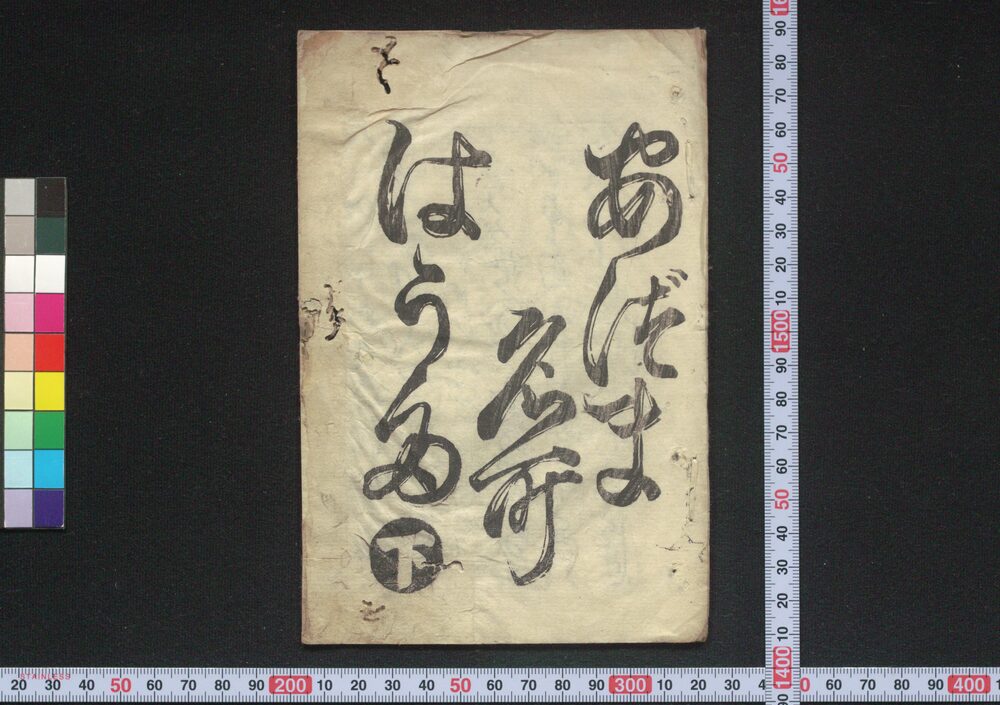 あづま
名所
はうた
下
90 80 70 60 50 40 30 20 10 1500 90 80 70 60 50 40 30 20 1400 90
STAINLESS
20 30 40 50 60 70 80 90 200 10 20 30 40 50 60 70 80 90 300 10 20 30
60 70 80 90 400